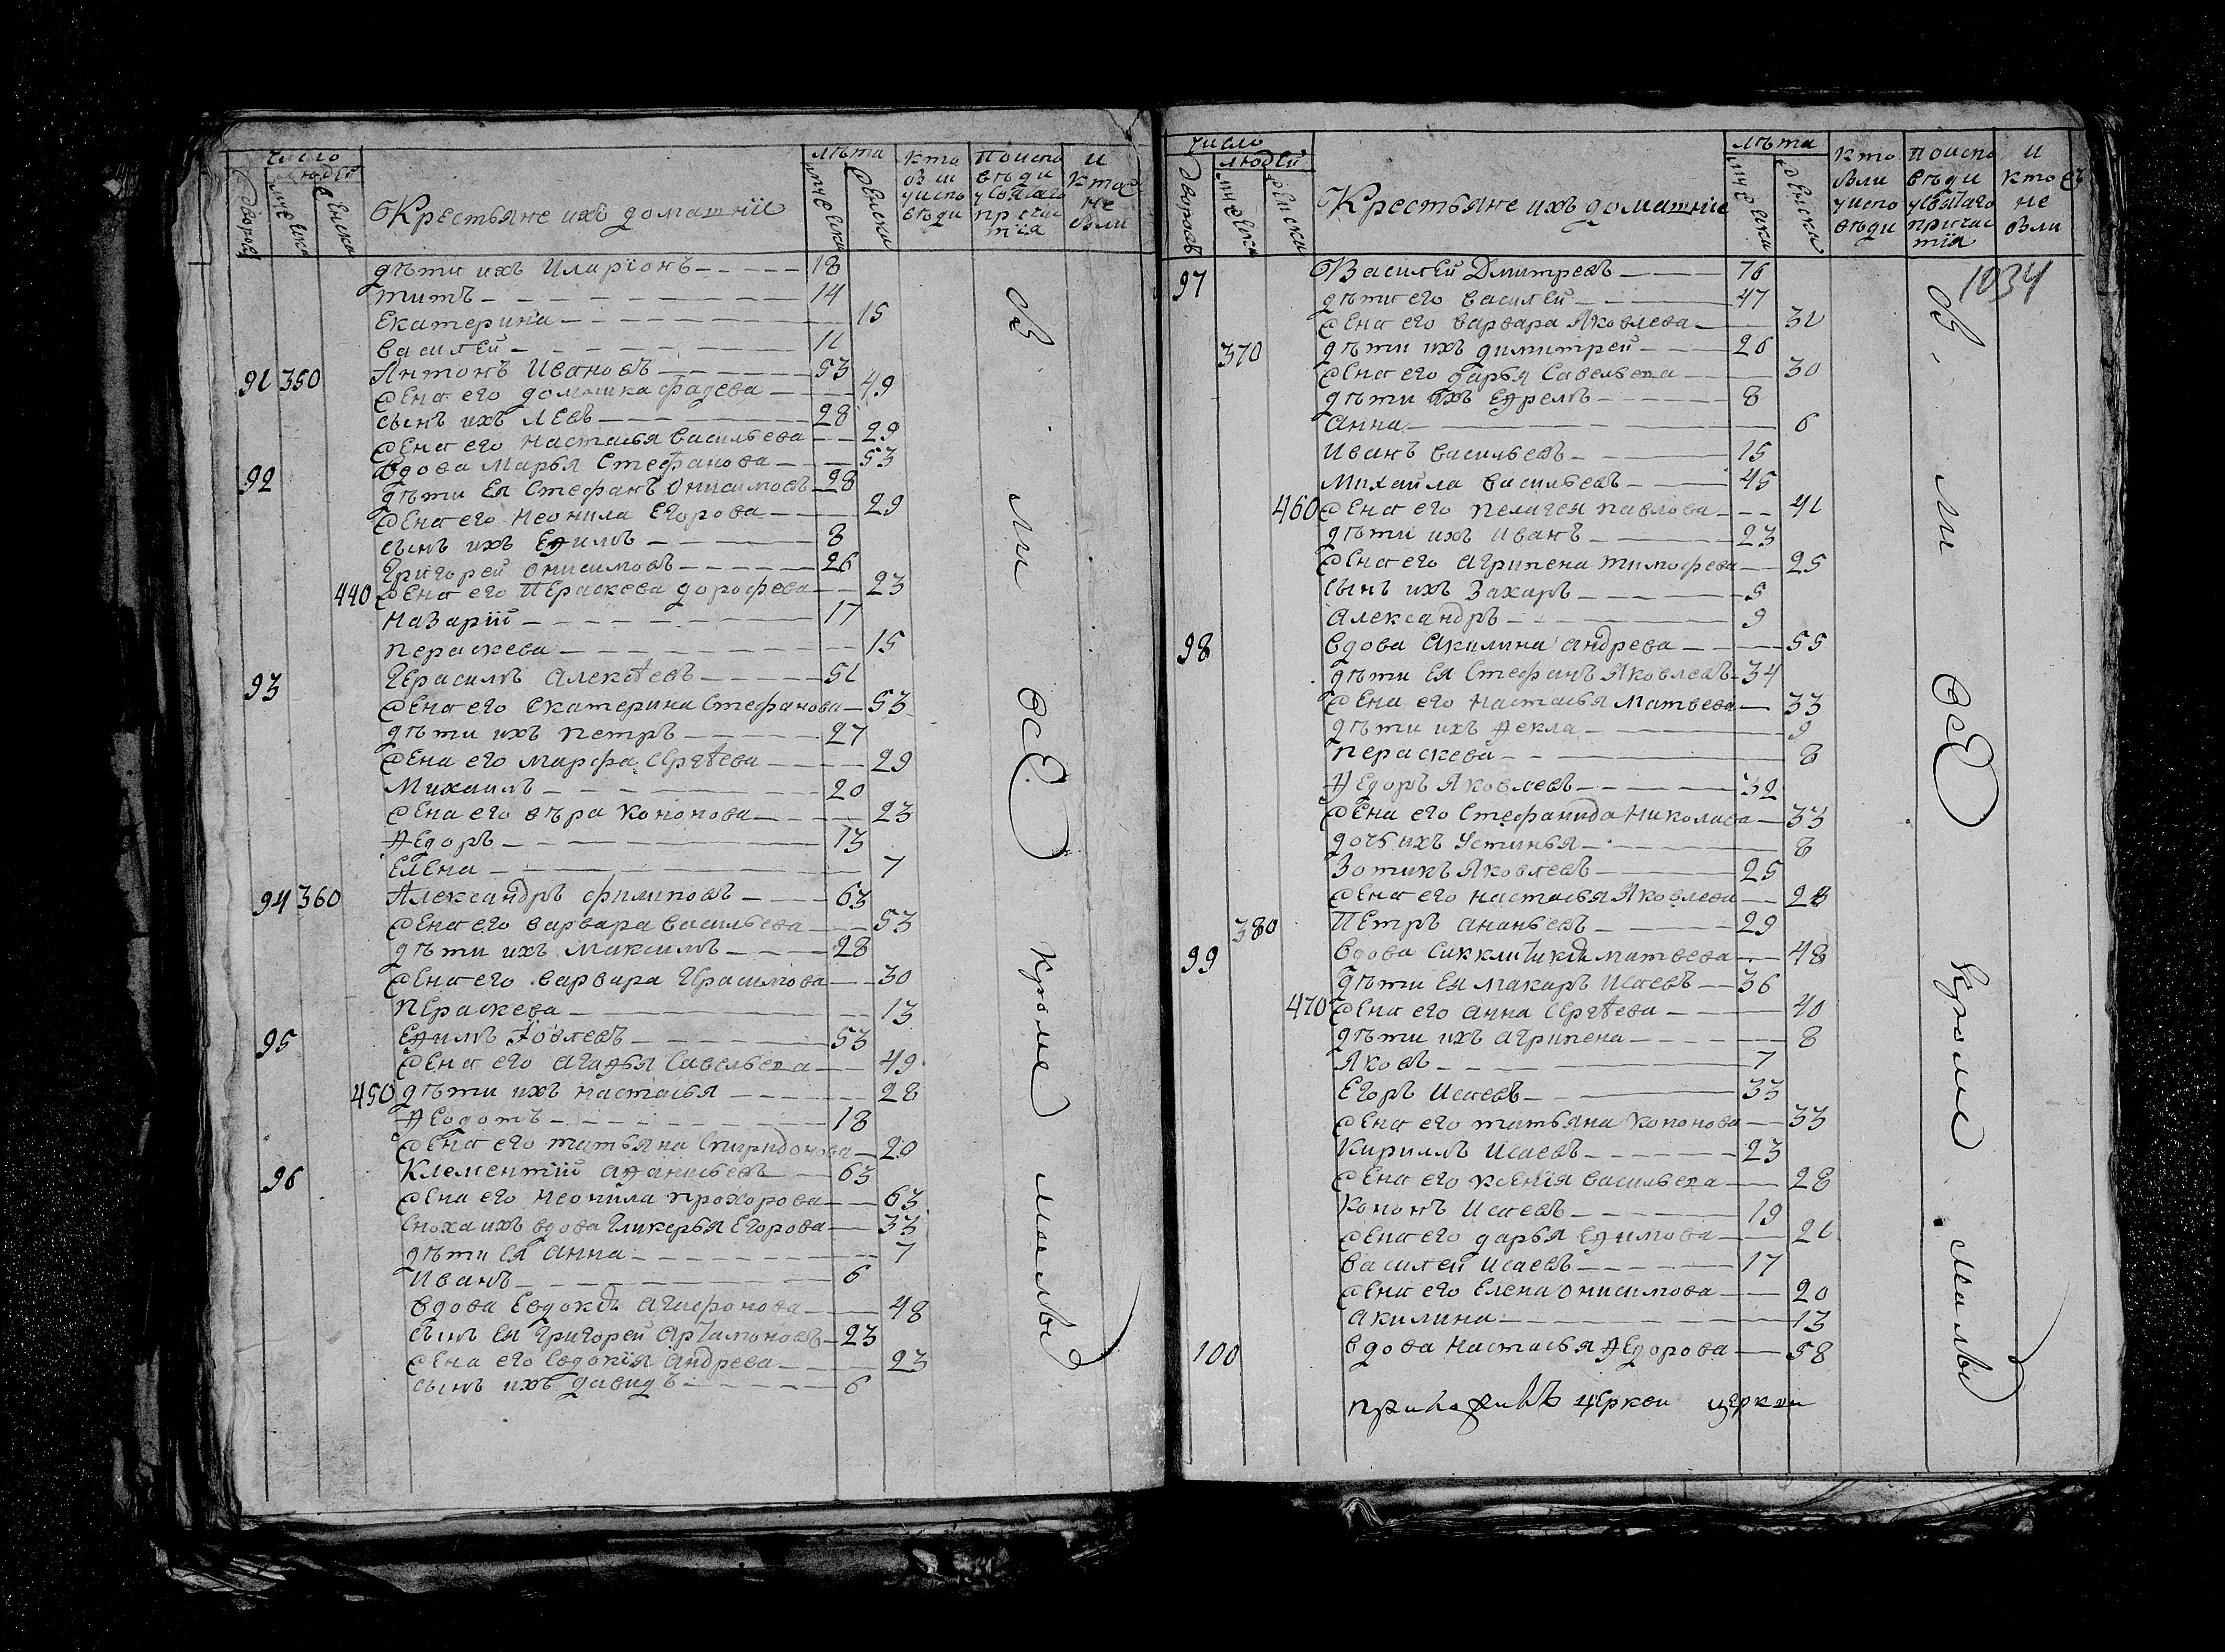 число
людей
дворовъ
мужеска
женска
Крестьяне ихъ домашніе
лѣта
мужеска
женска
кто были у исповѣди
по исповѣди у святаго причастія
и кто не были
дѣти ихъ Иларіонъ 18
титъ 14
Екатерина 15
василей 11
91 350 Антонъ Ивановъ 53
жена его домника фадева 49
сынъ ихъ Левъ 28
жена его настасья васильева 29
92 вдова Марья Стефанова 53
дѣти Ея Стефанъ Онисимовъ 28
жена его Неонила Егорова 29
сынъ ихъ Еѳимъ 8
Григорей онисимовъ 26
440 жена его Пераскева дорофева 23
Назарій 17
пераскева 15
93 Герасимъ Алексѣевъ 51
жена его Екатерина Стефанова 53
дѣти ихъ петръ 27
жена его марфа Сергѣева 29
Михаилъ 20
жена его вѣра Кононова 23
Ѳедоръ 13
Елена 7
94 360 Александръ филиповъ 63
жена его варвара васильева 53
дѣти ихъ Максимъ 28
жена его варвара Герасимова 30
Пераскева 13
95 Еѳимъ Іовлевъ 53
жена его агаѳья Савельева 49
450 дѣти ихъ настасья 28
Ѳедотъ 18
жена его татьяна Спиридонова 20
96 Климентій аѳанасьевъ 63
жена его неонила прохорова 63
сноха ихъ вдова Гликерья Егорова 33
дѣти ея анна 7
Иванъ 6
вдова Евдокія агафонова 48
сынъ Ея Григорей Артамоновъ 23
жена его Евдокія андрева 23
сынъ ихъ давидъ 6
вси
все
кроме
малы
число
людей
дворовъ
мужеска
женска
Крестьяне ихъ домашніе
лѣта
мужеска
женска
кто были у исповѣди
по исповѣди у святаго причастія
и кто не были
1034
97 Василей Дмитревъ 76
дѣти его василей 47
жена его варвара Яковлева 31
370 дѣти ихъ димитрей 26
жена его дарья Савельева 30
дѣти ихъ Еѳремъ 8
анна 6
Иванъ васильевъ 15
михайла васильевъ 45
460 жена его пелагея павлова 41
дѣти ихъ иванъ 23
жена его агрипена тимофева 25
сынъ ихъ Захаръ 5
александръ 9
98 вдова акилина андрева 55
дѣти Ея Стефанъ Яковлевъ 34
жена его настасья матвева 33
дѣти ихъ Ѳекла 9
пераскева 8
Ѳедоръ Яковлевъ 32
жена его Стефанида Николаева 33
дочь ихъ Устинья 8
Зотикъ Яковлевъ 25
жена его настасья Яковлева 28
380 Петръ ананьевъ 29
99 вдова матвева 48
дѣти Ея макаръ Исаевъ 36
470 жена его анна Сергѣева 40
дѣти ихъ агрипена 8
Яковъ 7
Егоръ Исаевъ 33
жена его татьяна Кононова 33
Кирилъ Исаевъ 23
жена его Ксенія васильева 28
Кононъ Исаевъ 19
жена его дарья Еѳимова 21
василей исаевъ 17
жена его Елена онисимова 20
акилина 13
100 вдова настасья Ѳедорова 58
церкви церкви
вси
все
кроме
малы